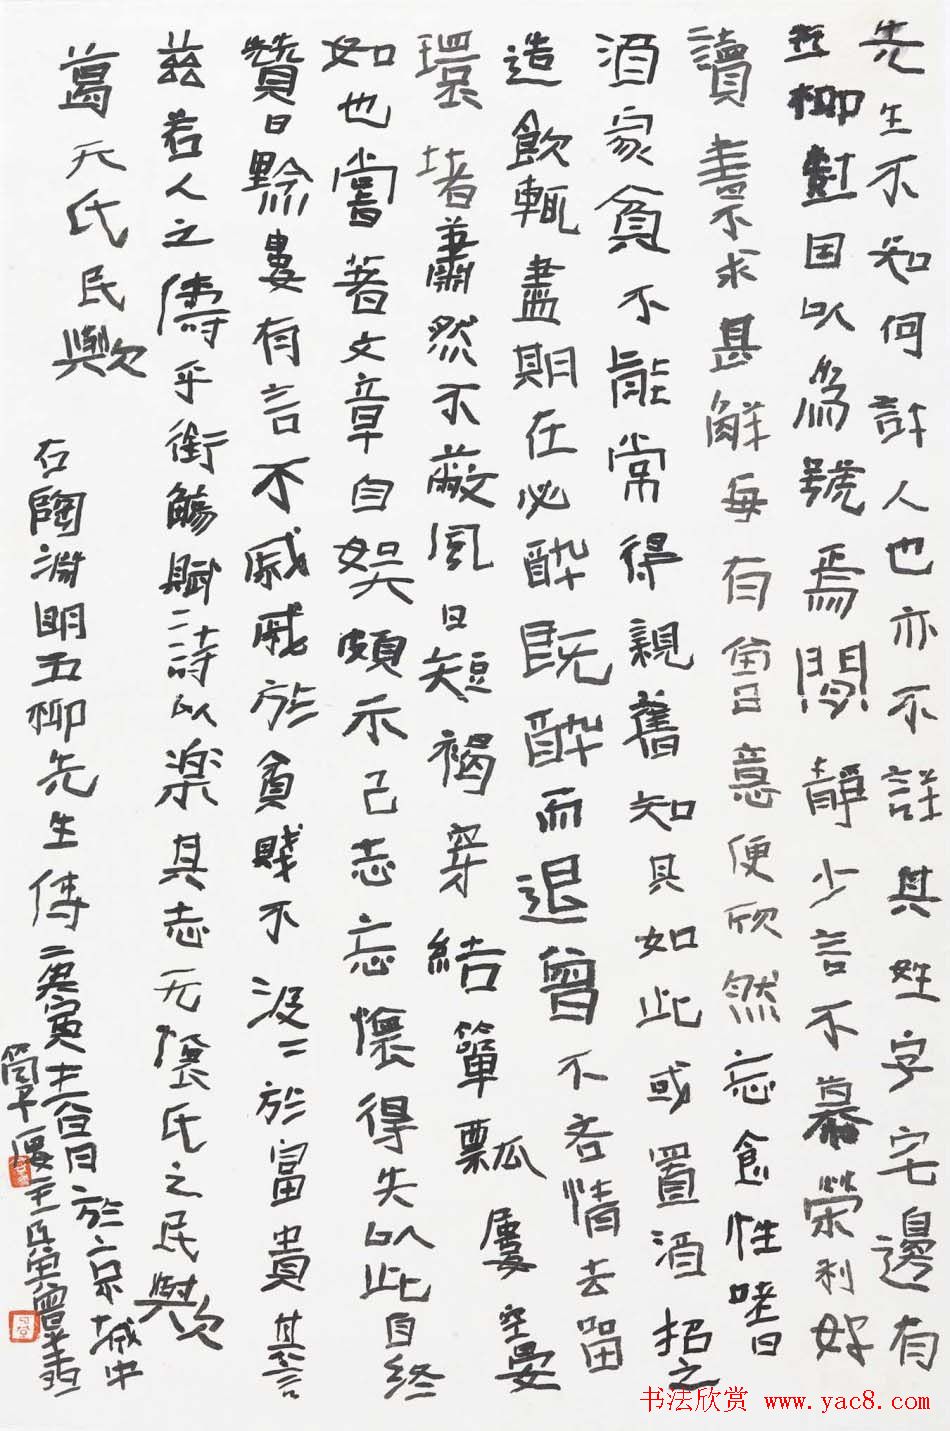 先生不知何許人也亦不詳其姓字宅邊有
五柳樹因以為號焉閑靜少言不慕榮利好
讀書不求甚解每有會意便欣然忘食性嗜
酒家貧不能常得親舊知其如此或置酒招之
造飲輒盡期在必醉既醉而退曾不吝情去留
環堵蕭然不蔽風日短褐穿結簞瓢屢空晏
如也嘗著文章自娛頗示己志忘懷得失以此自終
贊曰黔婁有言不戚戚於貧賤不汲二於富貴其言
茲若人之儔乎銜觴賦詩以楽其志无懷氏之民歟
葛天氏民歟
右陶淵明五柳先生傳庚寅於京城中
曾翔書
书法欣赏 www.yac8.com